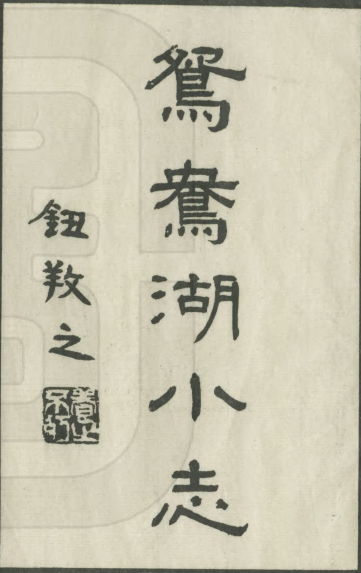 鴛鴦湖小志
鈕敩之